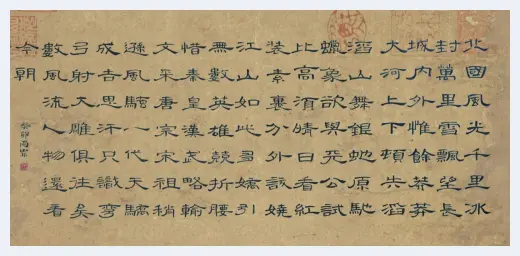 北國風光千里冰
封萬里雪飄望長
城内外惟餘莽莽
大河上下頓失滔
滔山舞銀蛇原馳
蠟象欲與天公試
比高須晴日看紅
裝素裹分外嬈
江山如此多嬌引
無數英雄競折腰
惜秦皇漢武略輸
文采唐宗宋祖稍
遜風騷一代天驕
成吉思汗只識彎
弓射大雕俱往矣
數風流人物還看
今朝